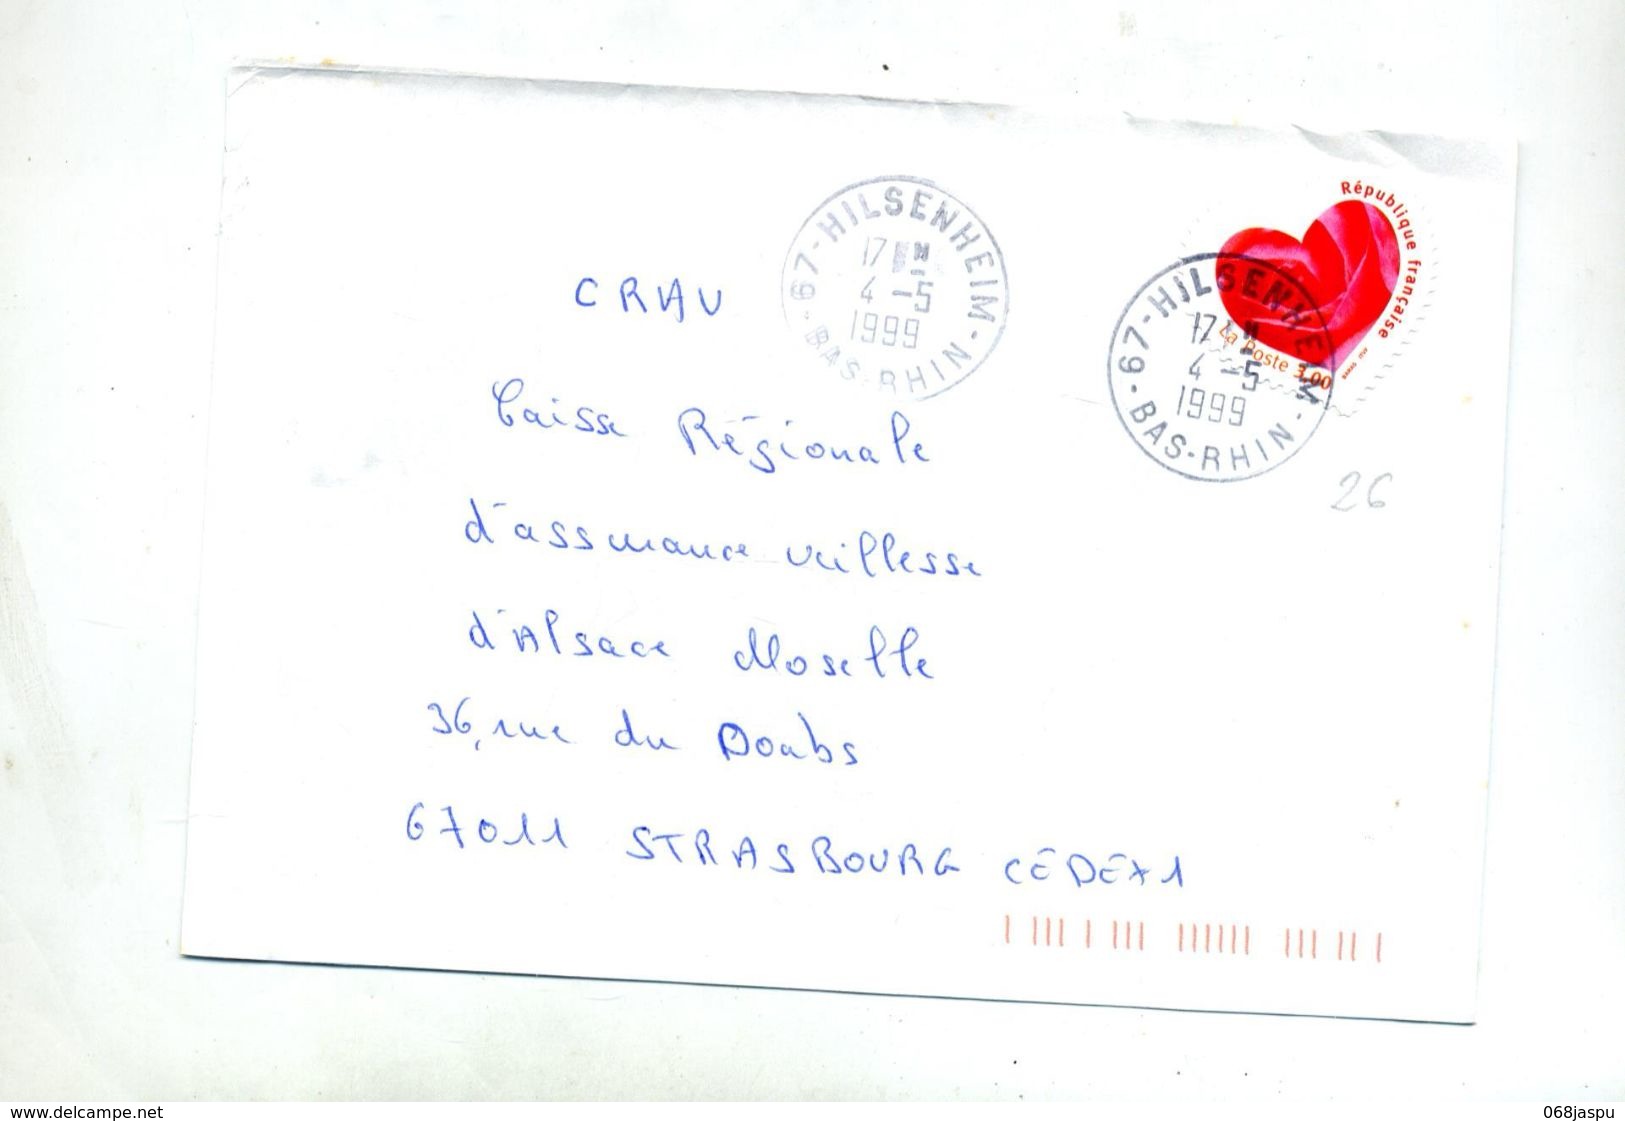 67-HILSENHEIM-
17 H
4-5
1999
BAS-RHIN
République française
La Poste 3,00
67-HILSENHEIM-
17 H
4-5
1999
BAS-RHIN-
26
CRAV
Caisse Régionale
d'assurance vieillesse
d'Alsace Moselle
36, rue du Doubs
67011 STRASBOURG CÉDEX1
www.delcampe.net
068jaspu